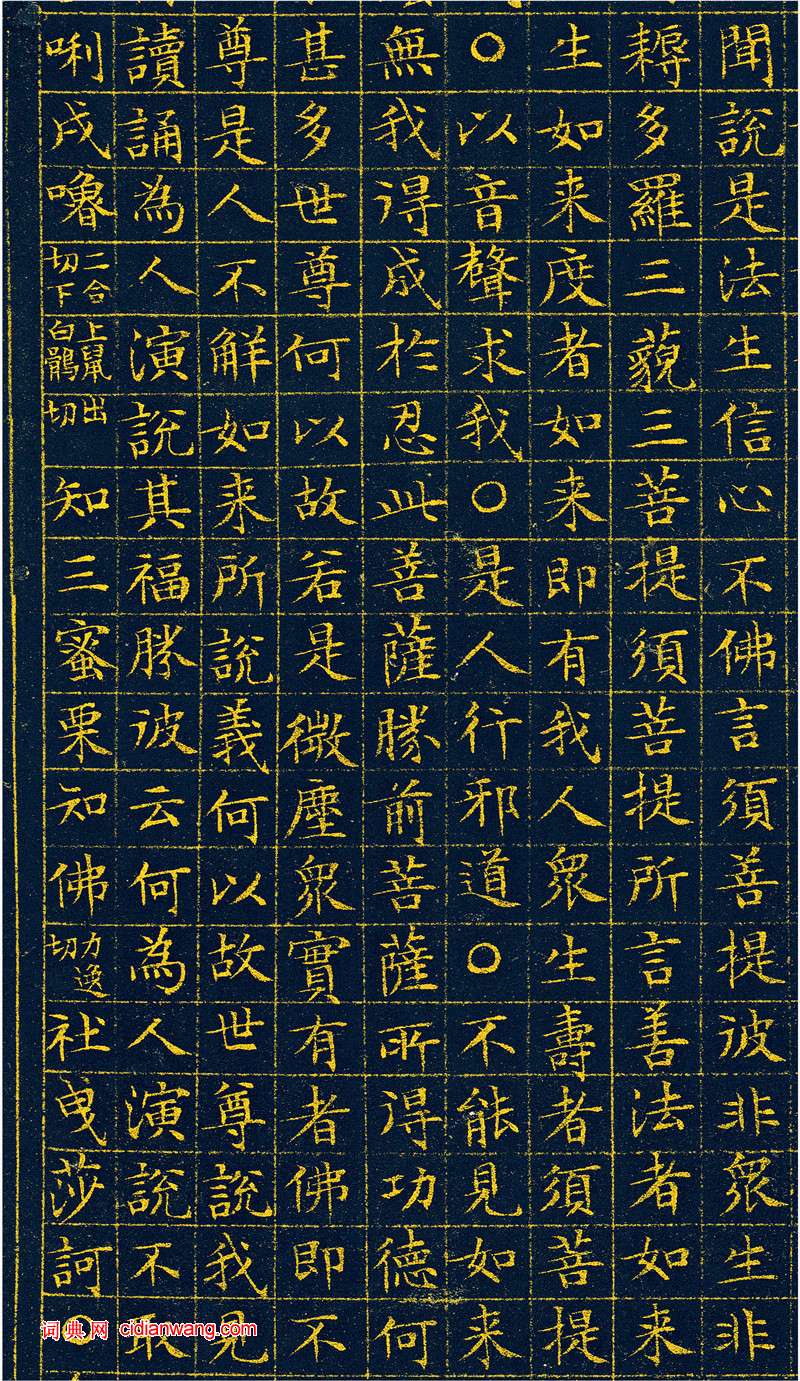 聞說是法生信心不佛言須菩提彼非衆生非
耨多羅三藐三菩提須菩提所言善法者如来
生如来度者如来即有我人衆生壽者須菩提
○以音聲求我○是人行邪道○不能見如来
無我得成於忍此菩薩勝前菩薩所得功德何
甚多世尊何以故若是微塵衆實有者佛即不
尊是人不解如来所說義何以故世尊說我見
讀誦為人演說其福勝彼云何為人演說不取
唎戌嚕二合切下上鼠白鶻出切知三蜜栗知佛力逸切社曳莎訶○
词典网 cidianwang.com